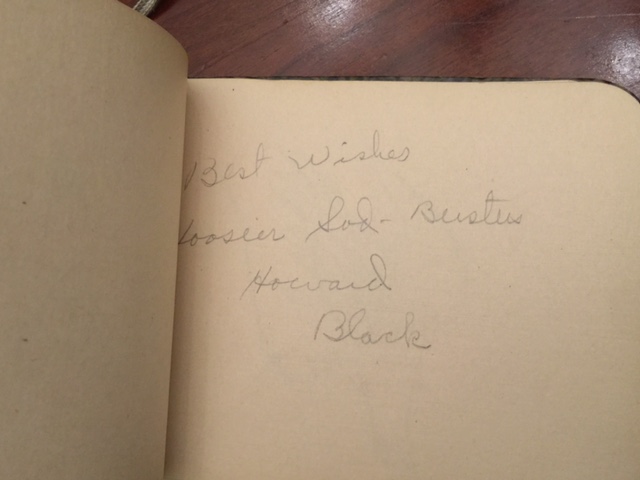 Best Wishes
Hoosier Sod-Busters
Howard
Black